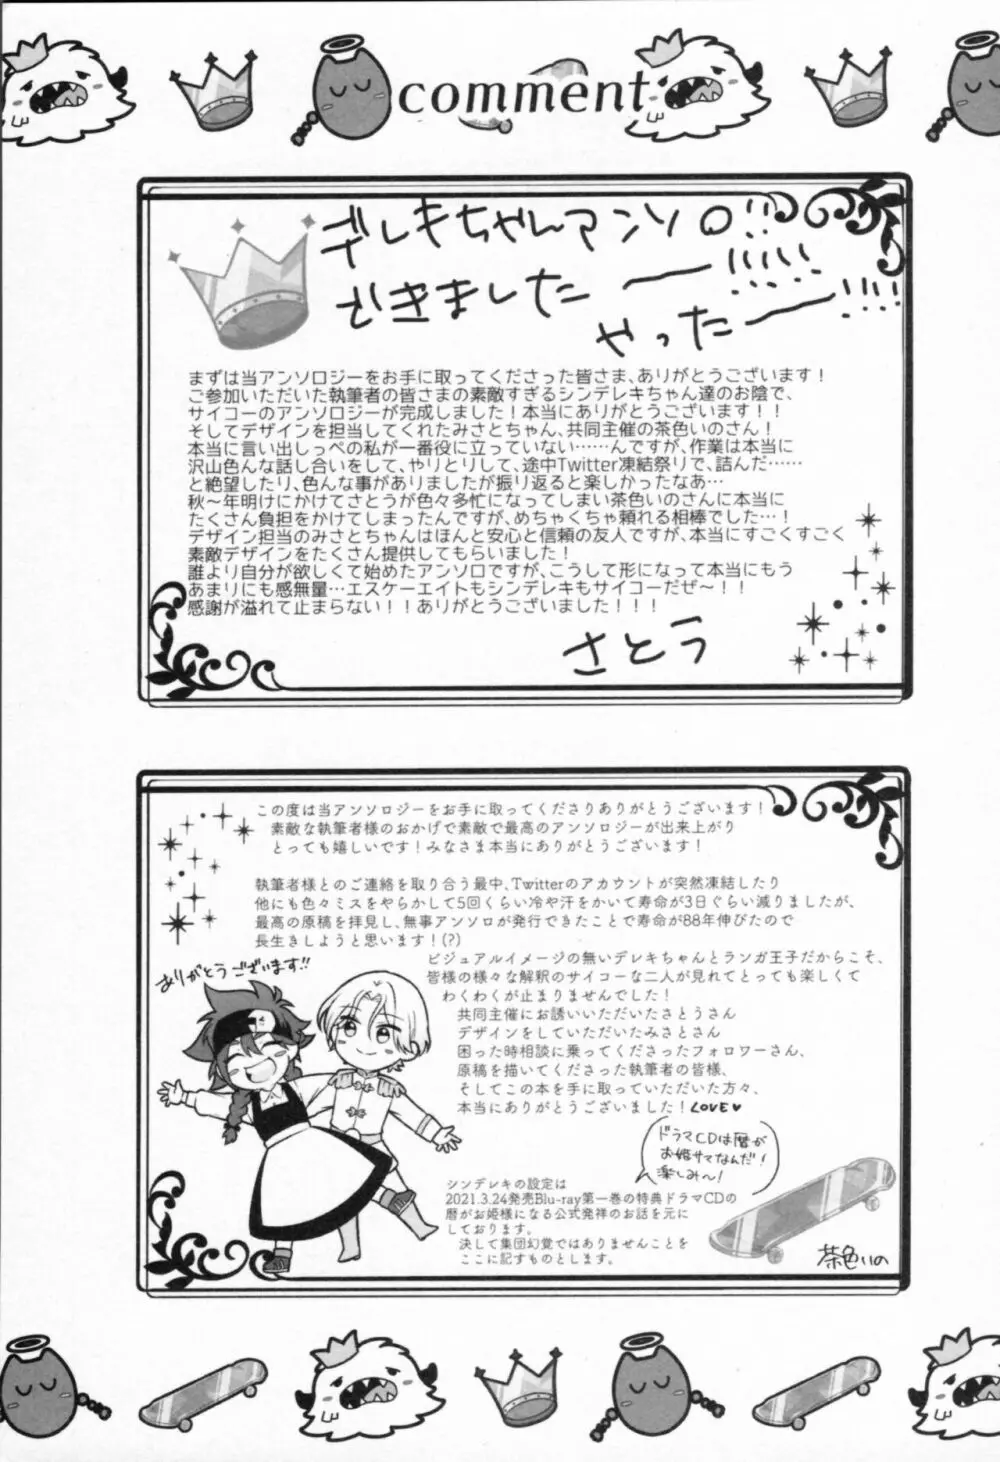 comment
デレキちゃんアンソロ!!
できましたー!!!!!
やったー!!!!
まずは当アンソロジーをお手に取ってくださった皆さま、ありがとうございます！
ご参加いただいた執筆者の皆さまの素敵すぎるシンデレキちゃん達のお陰で、
サイコーのアンソロジーが完成しました！本当にありがとうございます！！
そしてデザインを担当してくれたみさとちゃん、共同主催の茶色いのさん！
本当に言い出しっぺの私が一番役に立っていない……んですが、作業は本当に
沢山色んな話し合いをして、やりとりして、途中Twitter凍結祭りで、詰んだ……
と絶望したり、色んな事がありましたが振り返ると楽しかったなあ…
秋〜年明けにかけてさとうが色々多忙になってしまい茶色いのさんに本当に
たくさん負担をかけてしまったんですが、めちゃくちゃ頼れる相棒でした…！
デザイン担当のみさとちゃんはほんと安心と信頼の友人ですが、本当にすごくすごく
素敵デザインをたくさん提供してもらいました！
誰より自分が欲しくて始めたアンソロですが、こうして形になって本当にもう
あまりにも感無量…エスケーエイトもシンデレキもサイコーだぜ〜！！
感謝が溢れて止まらない！！ありがとうございました！！！
さとう
この度は当アンソロジーをお手に取ってくださりありがとうございます！
素敵な執筆者様のおかげで素敵で最高のアンソロジーが出来上がり
とっても嬉しいです！みなさま本当にありがとうございます！
執筆者様とのご連絡を取り合う最中、Twitterのアカウントが突然凍結したり
他にも色々ミスをやらかして5回くらい冷や汗をかいて寿命が3日ぐらい減りましたが、
最高の原稿を拝見し、無事アンソロが発行できたことで寿命が88年伸びたので
長生きしようと思います！(?)
ありがとうございます!!
ビジュアルイメージの無いデレキちゃんとランガ王子だからこそ、
皆様の様々な解釈のサイコーな二人が見れてとっても楽しくて
わくわくが止まりませんでした！
共同主催にお誘いいただいたさとうさん
デザインをしていただいたみさとさん
困った時相談に乗ってくださったフォロワーさん、
原稿を描いてくださった執筆者の皆様、
そしてこの本を手に取っていただいた方々、
本当にありがとうございました！LOVE♥
ドラマCDは暦が
お姫サマなんだ！
楽しみ〜！
シンデレキの設定は
2021.3.24発売Blu-ray第一巻の特典ドラマCDの
暦がお姫様になる公式発祥のお話を元に
しております。
決して集団幻覚ではありませんことを
ここに記すものとします。
茶色いの